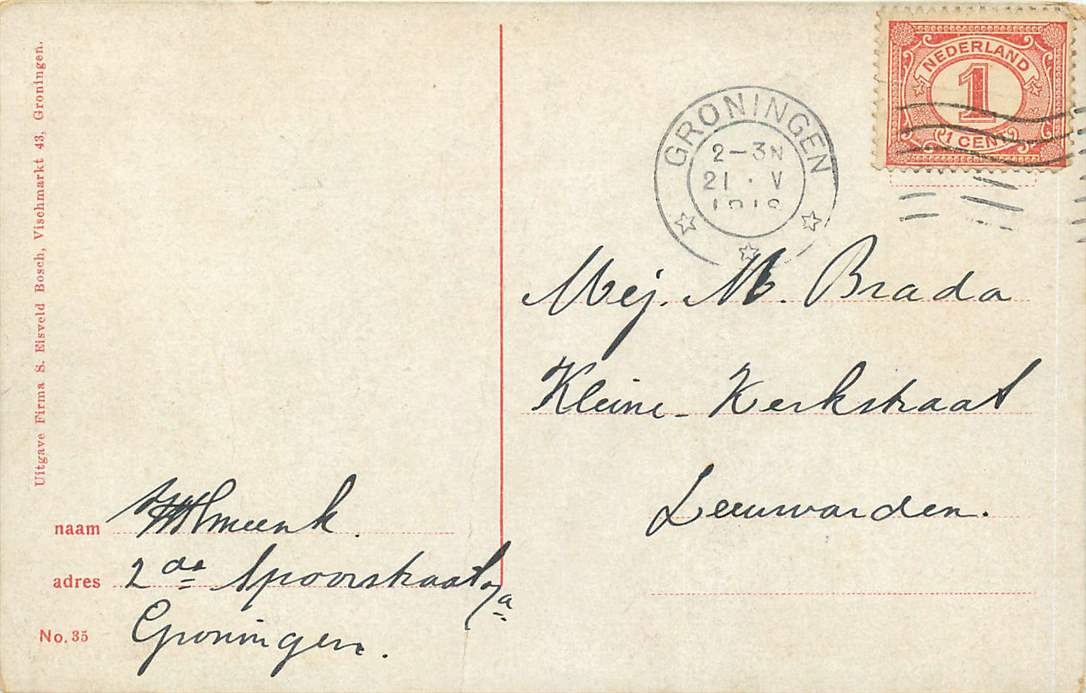 Uitgave Firma S. Eisveld Bosch, Vischmarkt 43, Groningen.
NEDERLAND
1
1 CENT
GRONINGEN
2-3N
21 · V
Mej. M. Brada
Kleine-Kerkstraat
Leeuwarden.
naam
adres 2de Spoorstraat 7a
No. 35 Groningen.